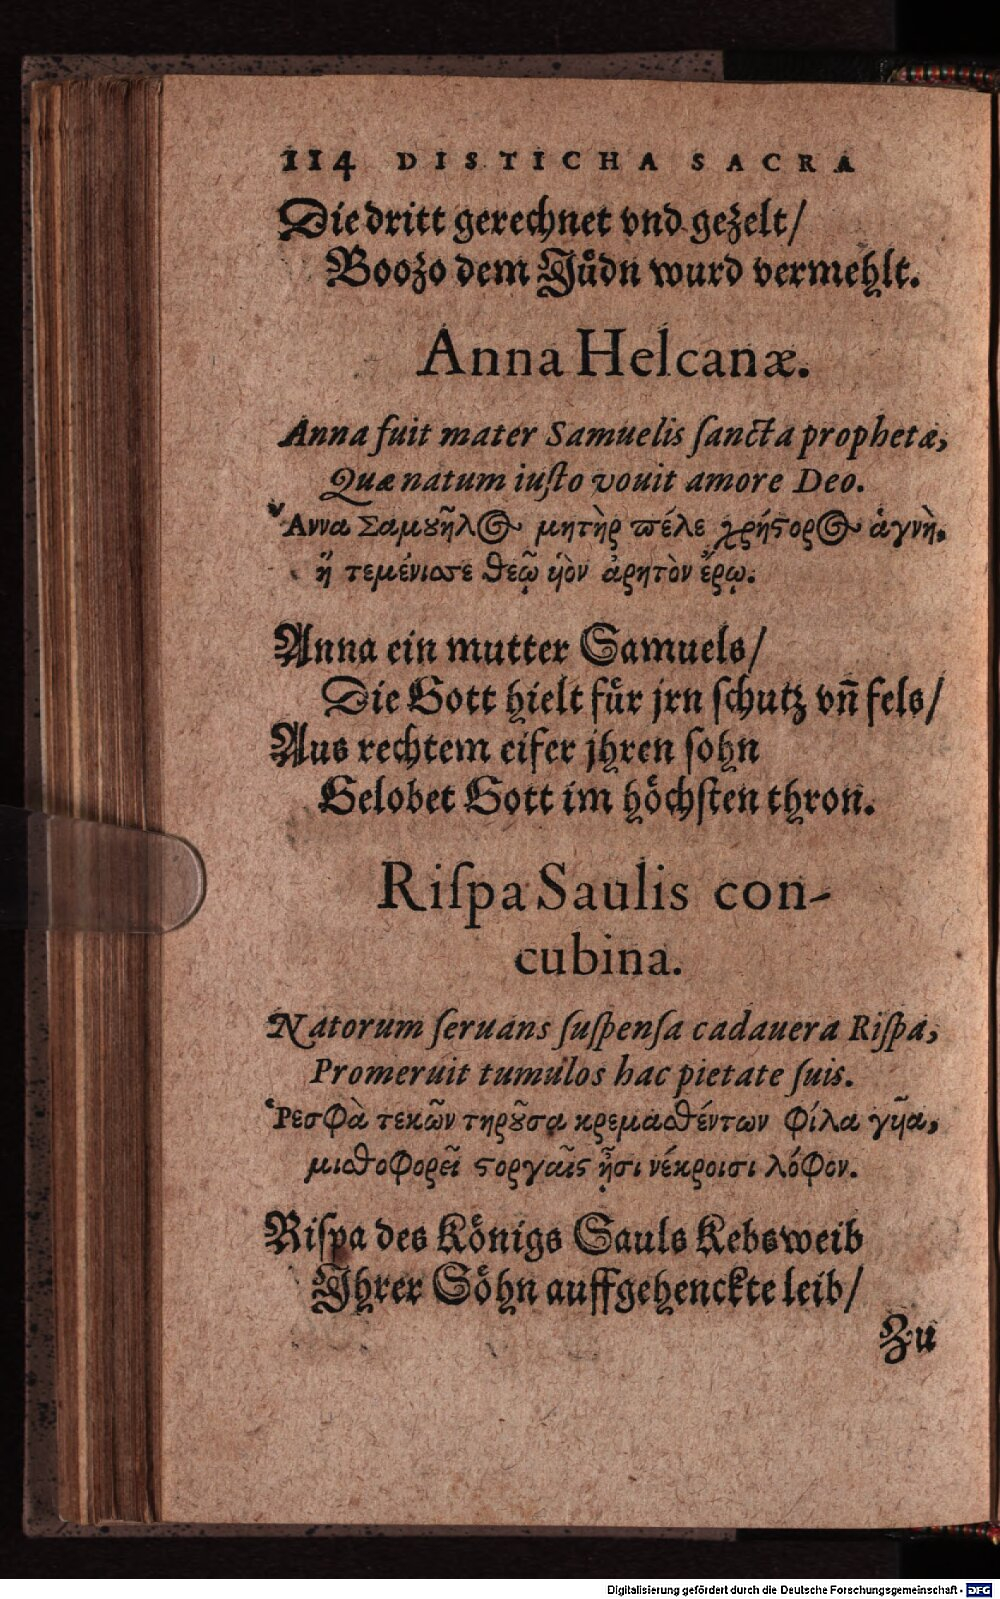 114 DISTICHA SACRA
Die dritt gerechnet vnd gezelt/
Boozo dem Jůdn wurd vermehlt.
Anna Helcanæ.
Anna fuit mater Samuelis ſancta prophetæ,
Quæ natum iuſto vouit amore Deo.
Ἄννα Σαμȣῆλος μητὴρ ϖέλε χρήϛορος ἁγνὴ,
ἥ τεμένισσε θεῷ ὑὸν ἀρητὸν ἔρῳ.
Anna ein mutter Samuels/
Die Gott hielt fůr jrn ſchutz vñ fels/
Aus rechtem eifer jhren ſohn
Gelobet Gott im hoͤchſten thron.
Riſpa Saulis con-
cubina.
Natorum ſeruans ſuſpenſa cadauera Riſpa,
Promeruit tumulos hac pietate ſuis.
Ῥεσφὰ τεκῶν τηρȣ͂σα κρεμασθέντων φίλα γῦα,
μισθοφορεῖ ϛοργαῖς ᾗσι νέκροισι λόφον.
Riſpa des Koͤnigs Sauls Kebsweib
Jhrer Soͤhn auffgehenckte leib/
Zu
Digitalisierung gefördert durch die Deutsche Forschungsgemeinschaft - DFG